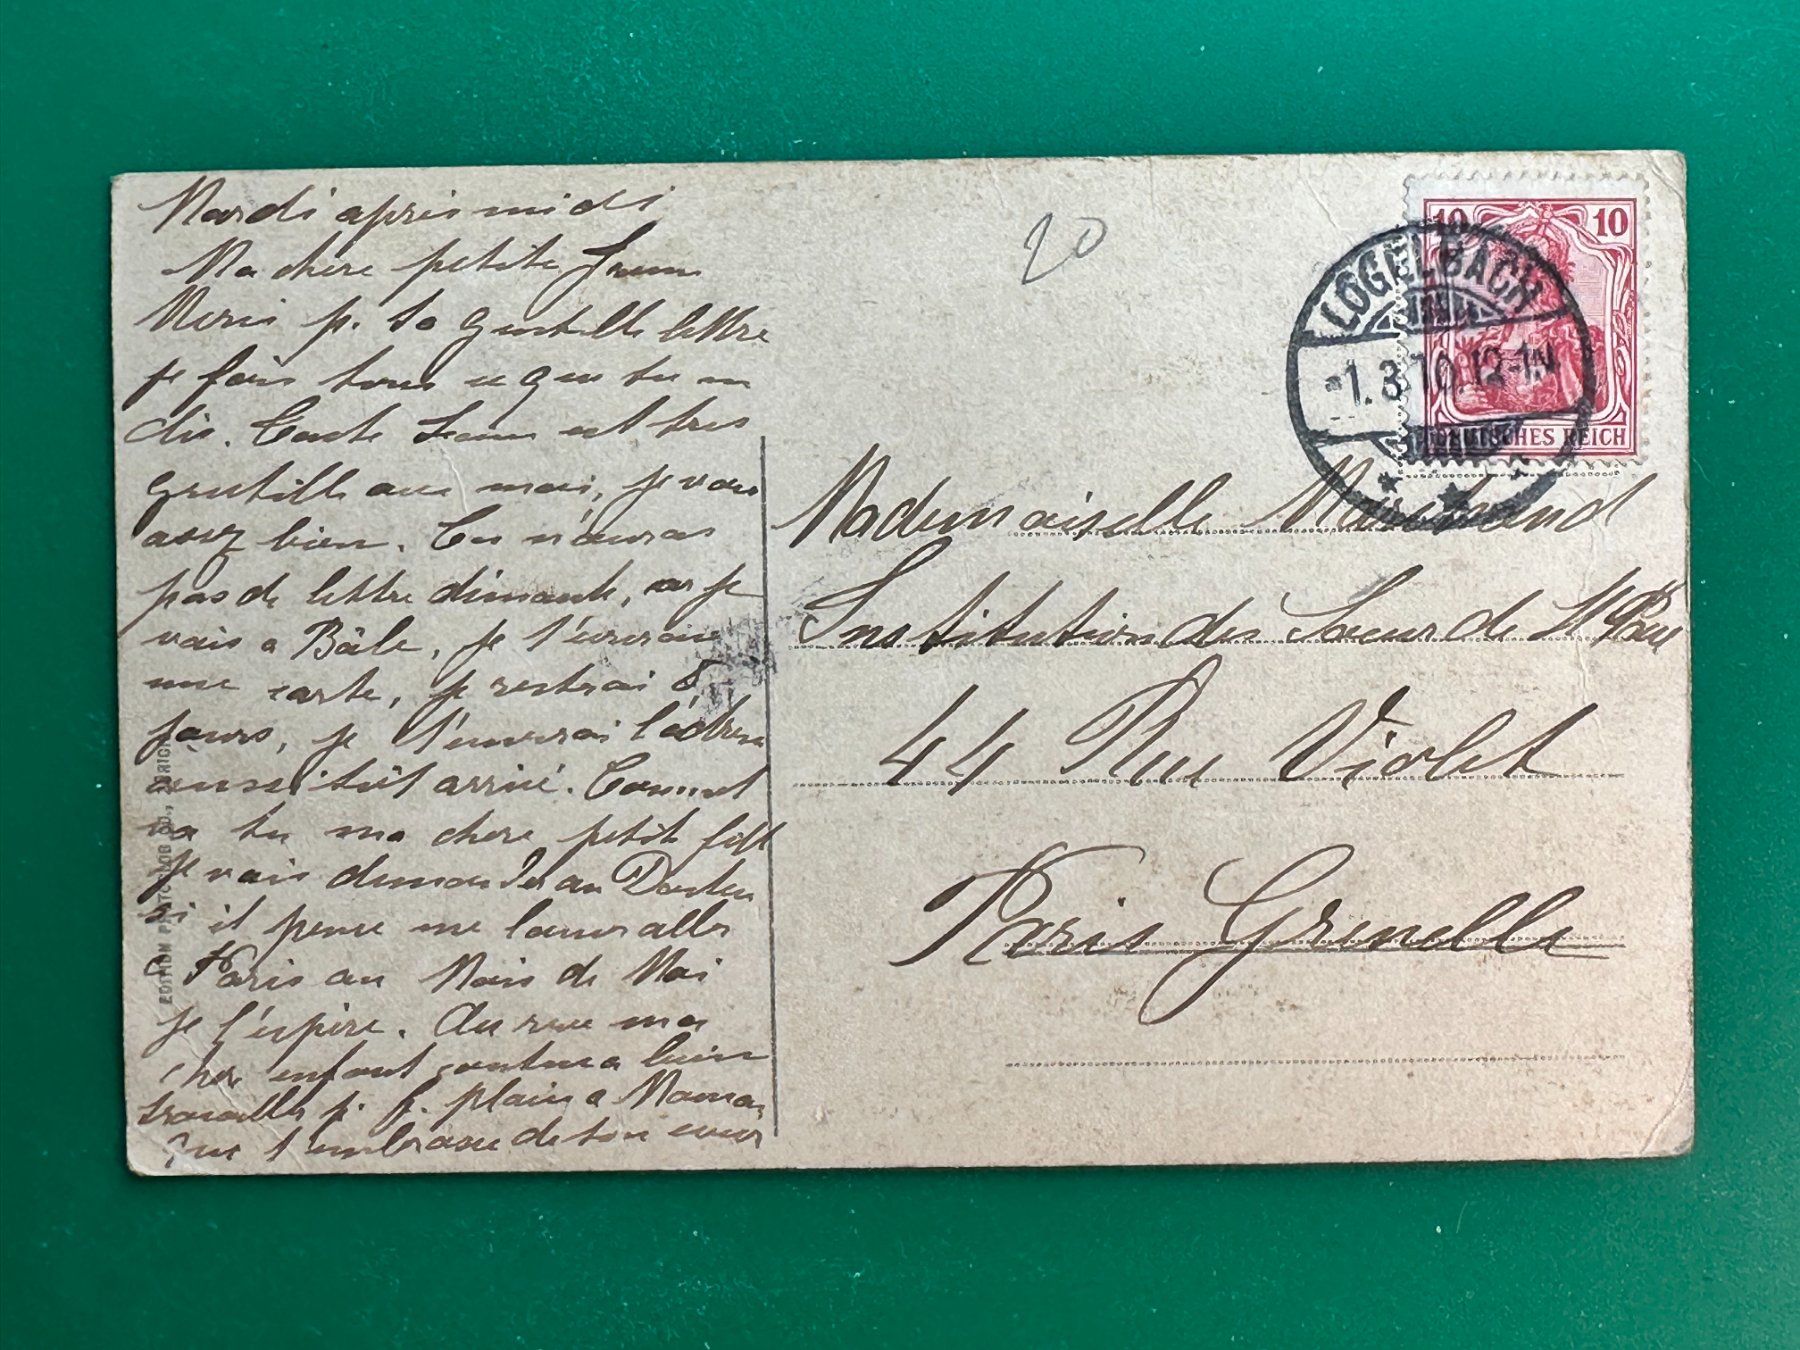 Mardi apris midi
Ma chere petite
Merci p. ta gentille lettre
je fais tous ce que tu m
dis. Tante est tres
gentille avec moi, je vais
asez bien. Tu n'auras
pas de lettre dimanche, car je
vais a Bâle, je t'enverai
une carte, je resterai 8
jours, je t'enverai l'adresse
aussitôt arrivé. Comment
va tu ma chere petit fille
je vais demander au Docteur
si il pense me laiser aller
Paris au Mois de Mai
je l'espère. Au revoir ma
chere enfant continue a bien
travaille p. f. plaisir a Maman
Que t'embrasse de tou coeur
20
LOGELBACH
-1.3.10.12-1N.
10 10
DEUTSCHES REICH
Mademoiselle Marchand
Institution des Soeur de St
44 Rue Violet
Paris Grenelle
EDITION PHOTOGLOB CO., ZÜRICH